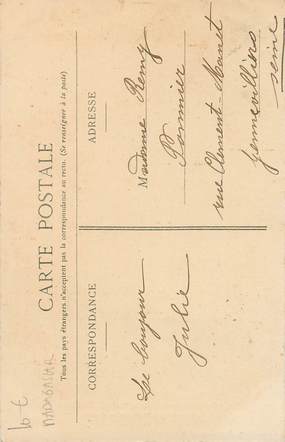 CARTE POSTALE
Tous les pays étrangers n'acceptent pas la correspondance au recto. (Se renseigner à la poste)
CORRESPONDANCE
Le bonjour
Julie
ADRESSE
Madame Remy
Pommier
rue Clement-Manet
Gennevilliers
Seine
10 €
MADAGASCAR